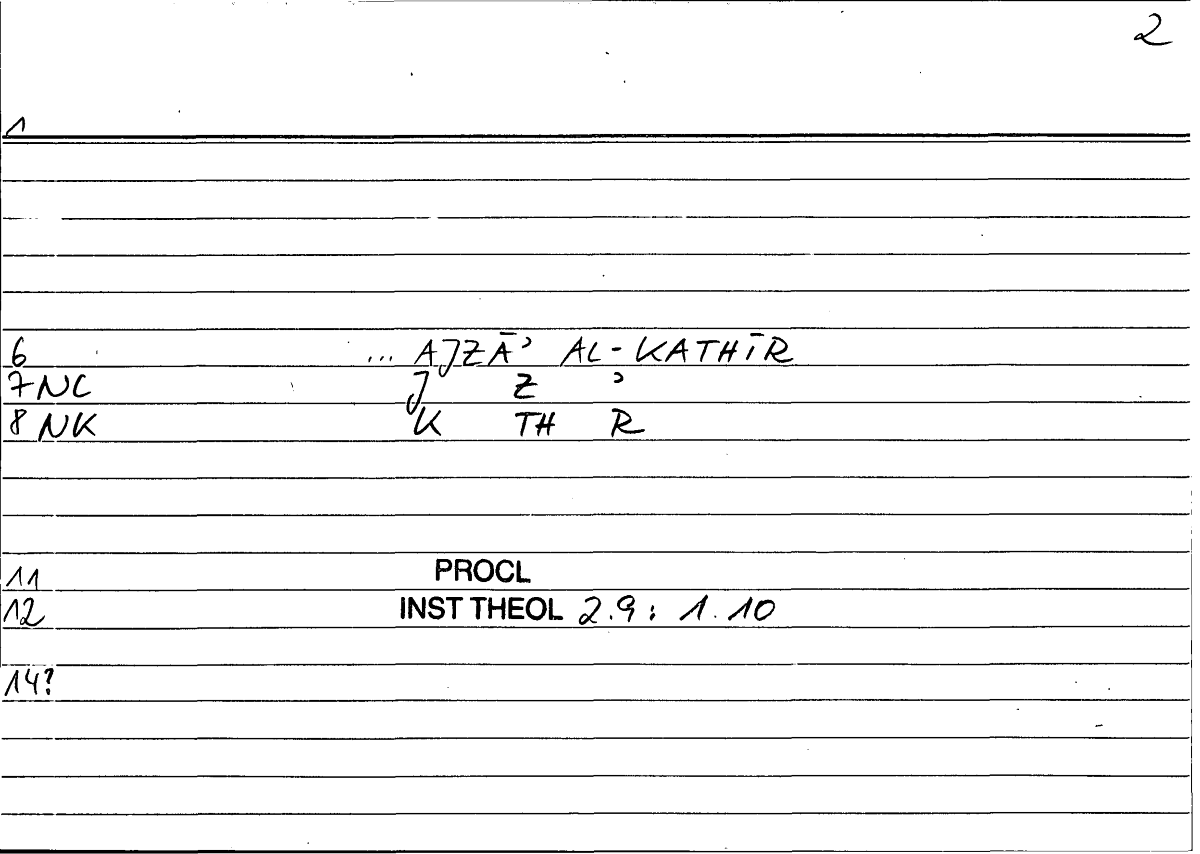 2
1
6 ... AJZĀʾ AL-KATHĪR
7 NC J Z ʾ
8 NK K TH R
11 PROCL
12 INST THEOL 2.9: 1.10
14?